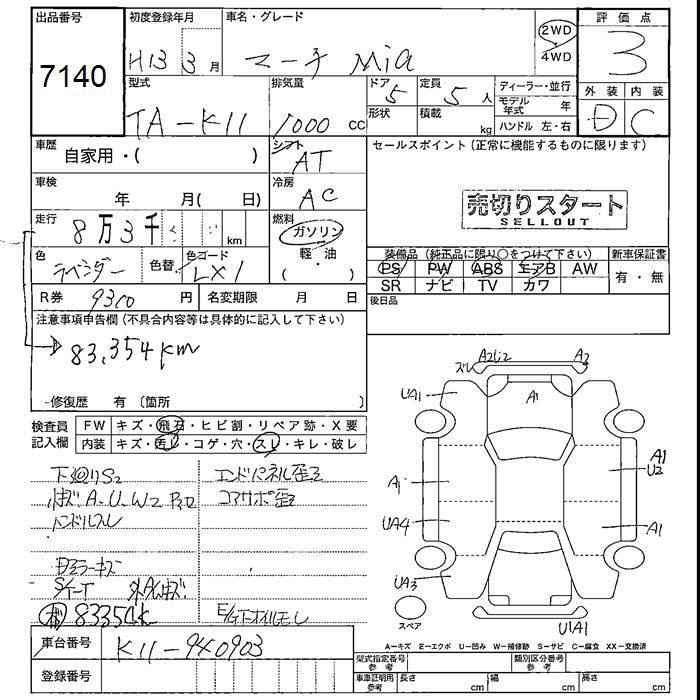 出品番号
7140
初度登録年月
H13 3月
車名・グレード
マーチ Mia
2WD
4WD
評価点
3
外装 内装
D C
型式
TA-K11
排気量
1000 CC
ドア
5
形状
定員
5人
積載
kg
ディーラー・並行
モデル年式 年
ハンドル 左・右
車歴
自家用・( )
シフト
AT
セールスポイント (正常に機能するものに限ります)
売切りスタート
SELLOUT
車検
年 月( 日)
冷房
AC
走行
8万3千 km
燃料
ガソリン
軽・油
( )
色
ラベンダー
色替
色コード
LX1
装備品 (純正品に限り○をつけて下さい)
新車保証書
PS PW ABS エアB AW
SR ナビ TV カワ
有・無
R券 9300円
名変期限 月 日
後日品
注意事項申告欄 (不具合内容等は具体的に記入して下さい)
83,354km
修復歴 有 (箇所 )
検査員
記入欄
FW キズ・飛石・ヒビ割・リペア跡・X要
内装 キズ・汚レ・コゲ・穴・スレ・キレ・破レ
下廻りS2
エンドパネル歪
コアサポ歪
ハンドルスレ
83354k
車台番号
K11-940903
登録番号
ズレ A2 A2
UA1 A1
A1 A1
U2
UA4 A1
UA3
スペア
U1A1
A-キズ E-エクボ U-凹み W-補修跡 S-サビ C-腐食 XX-交換済
型式指定番号
参考
類別区分番号
参考
車庫証明用
参考
長さ cm 幅 cm 高さ cm